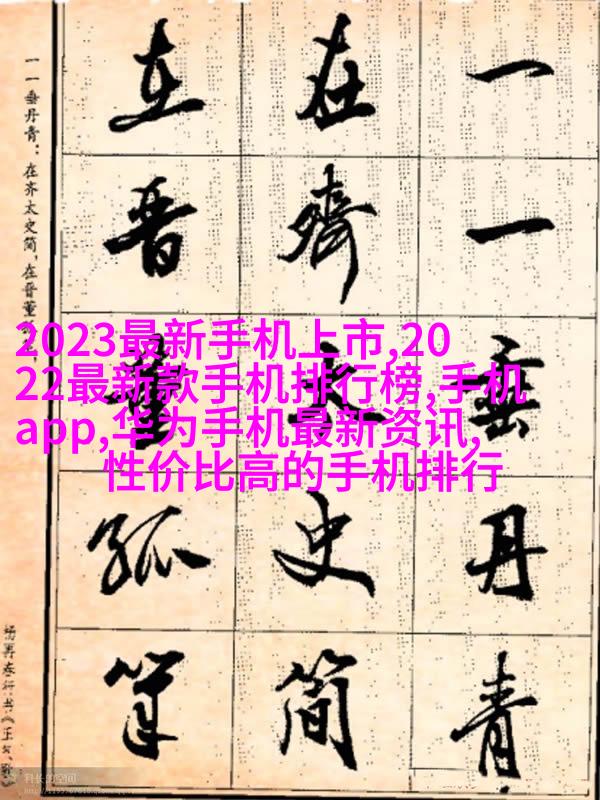 一一垂丹青
在齐太史简
在晋董狐笔
一一垂丹青：在齐太史简，在晋董
2023最新手机上市,20
22最新款手机排行榜,手机
app,华为手机最新资讯,
性价比高的手机排行
科长的空间